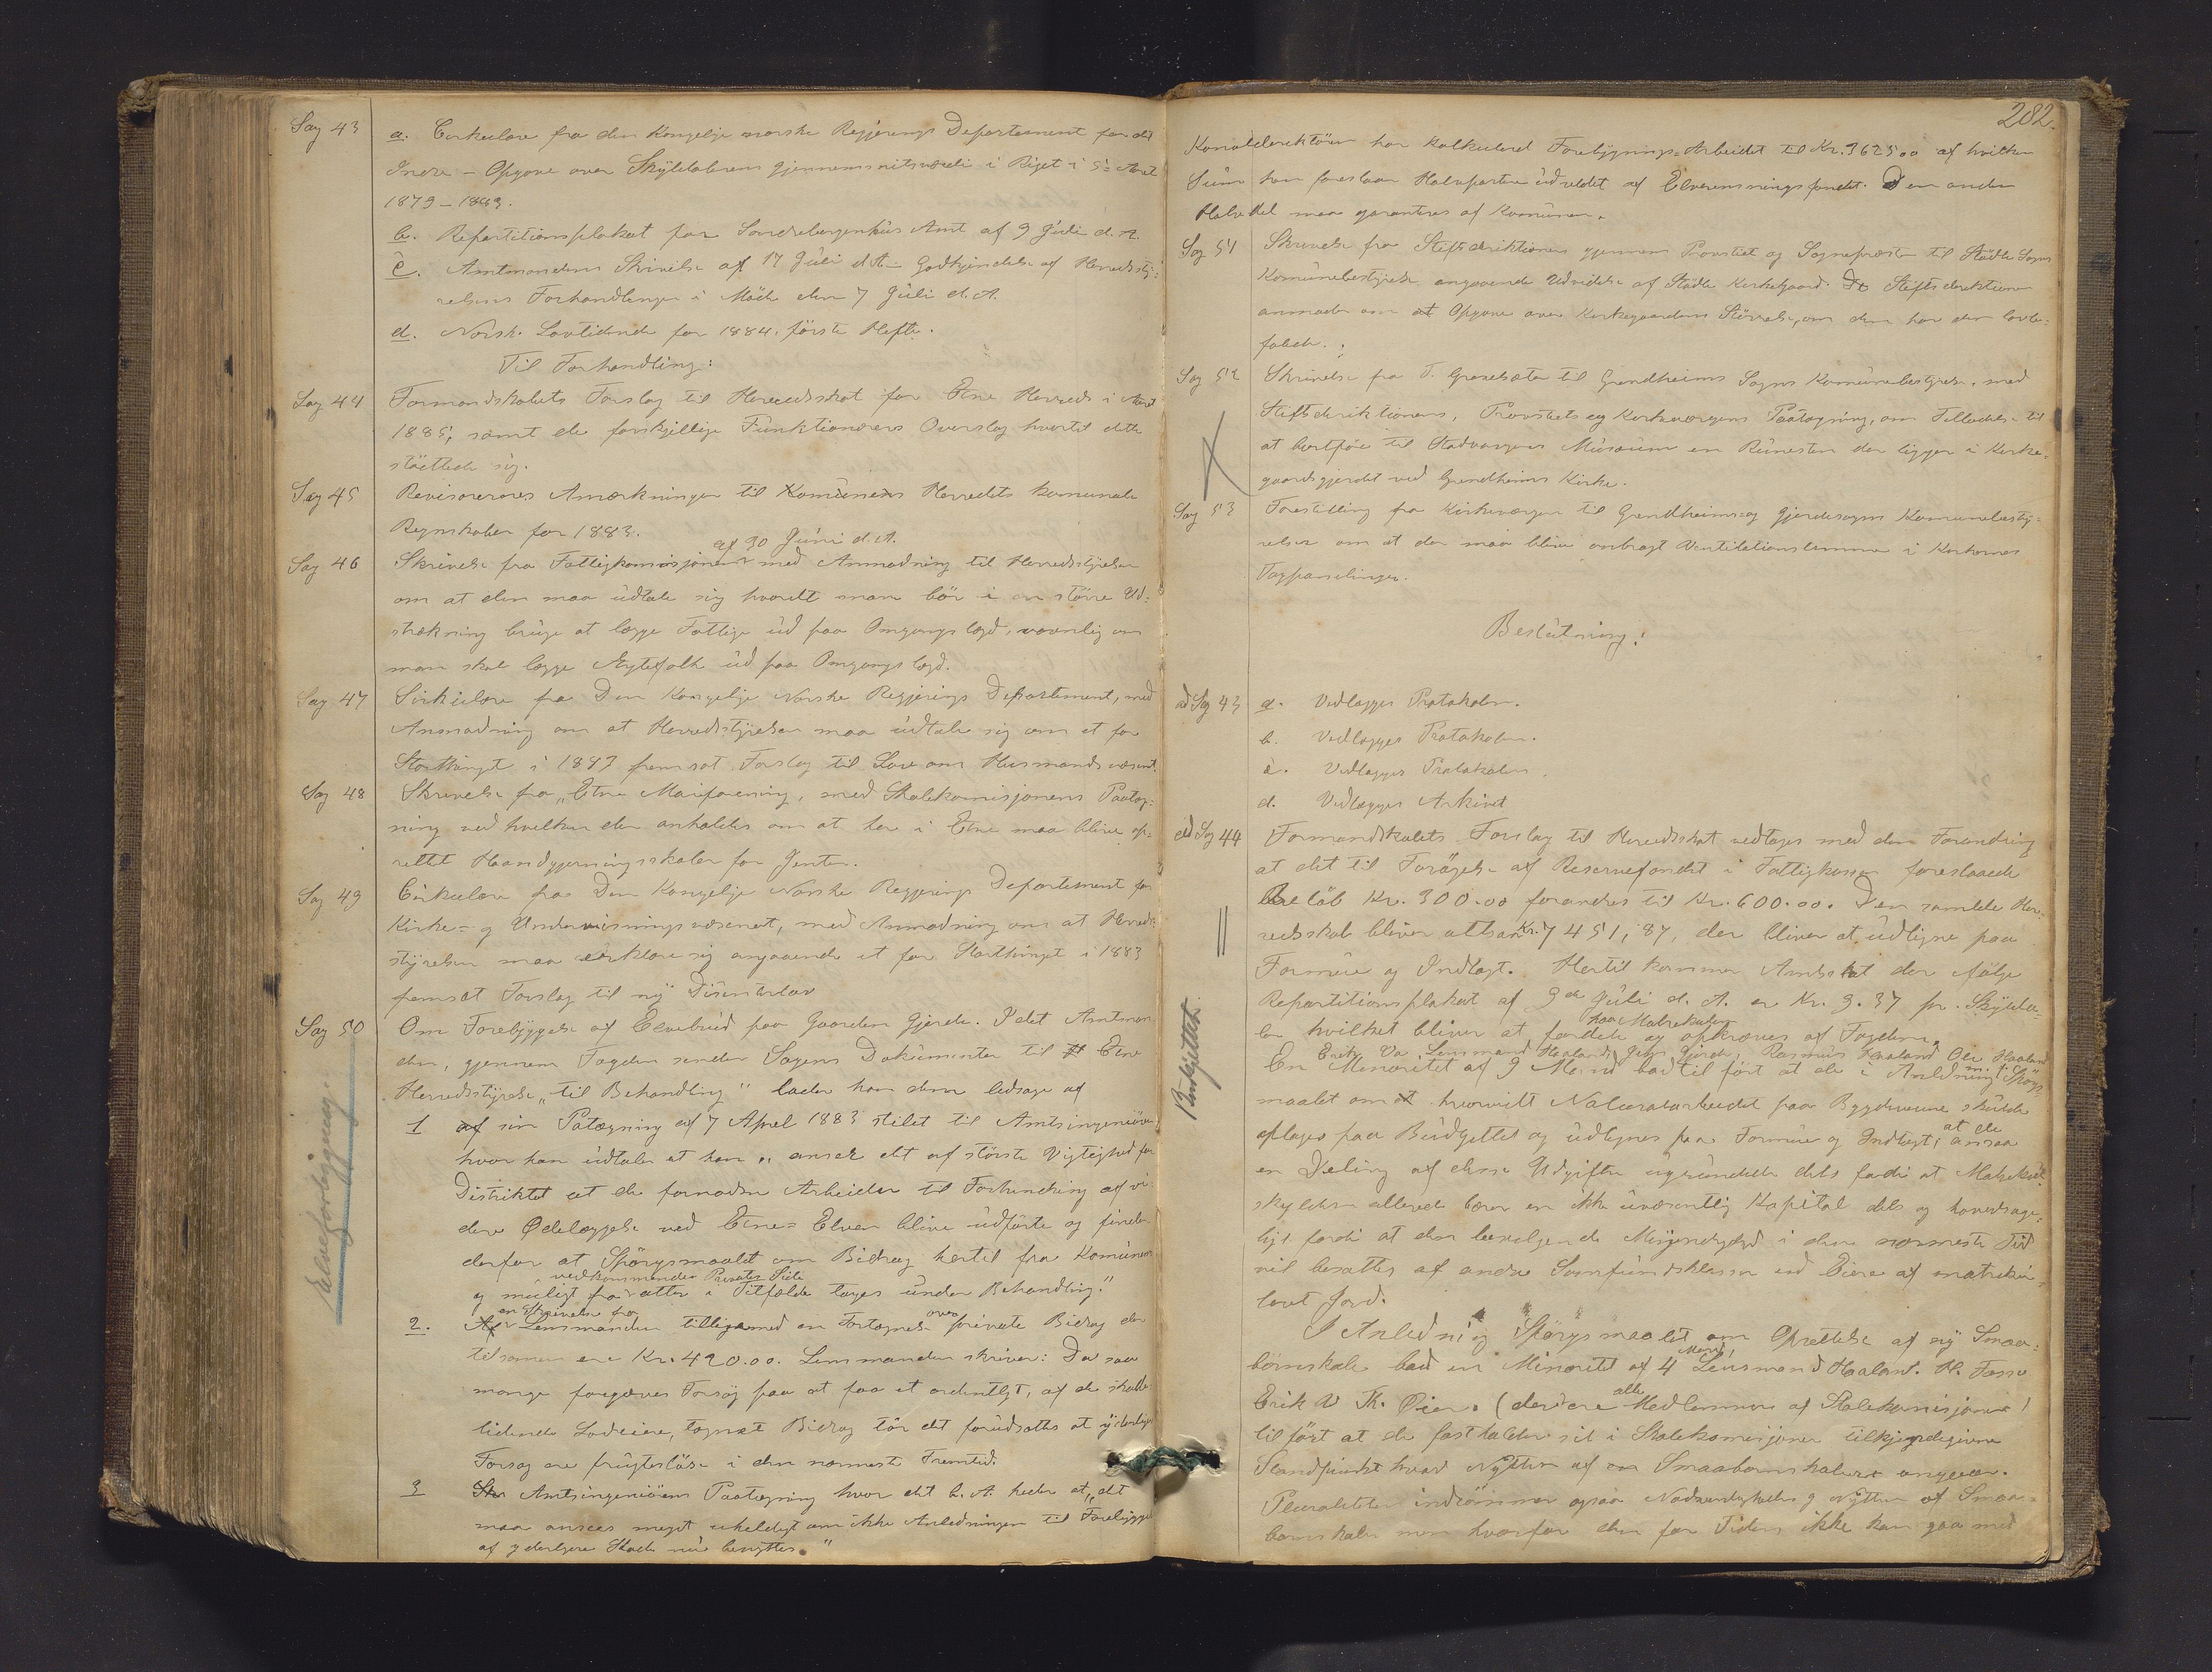 Sag 43 a. Cirkulære fra den Kongelige norske Regjerings Departement for det
Indre – Opgave over Skylddalerens gjennemsnitsværdi i Riget i 5 Aaret
1879–1883.
b. Repartitionsplakat for Søndrebergenhus Amt af 9 Juli d. A.
c. Amtmandens Skrivelse af 17 Juli d. A. – Godkjendelse af Herredssty=
relsens Forhandlinger i Møde den 7 Juli d. A.
d. Norsk Lovtidende for 1884. første Hefte.
Til Forhandling:
Sag 44 Formandskabets Forslag til Herredsskat for Etne Herred i Aaret
1885, samt de forskjellige Funktionærers Overslag hvortil dette
støttede sig.
Sag 45 Revisorernes Anmærkninger til Komünens Herredets komunale
Regnskaber for 1883.
af 30 Juni d. A.
Sag 46 Skrivelse fra Fattigkomisjonen med Anmodning til Herredsstyrelsen
om at den maa udtale sig hvorvidt man bør i en større Ud=
strækning bruge at lægge Fattige ud paa Omgangslægd, navnlig om
man skal lægge Nytefolk ud paa Omgangslægd.
Sag 47 Sirkulære fra Den Kongelige Norske Regjerings Departement, med
Anmodning om at Herredsstyrelsen maa udtale sig om et for
Storthinget i 1883 fremsat Forslag til Lov om Husmandsvæsenet.
Sag 48 Skrivelse fra „Etne Maiforening, med Skolekomisjonens Paateg=
ning ved hvilken der anholdes om at her i Etne maa blive op=
rettet Haandgjerningsskoler for Jenter.
Sag 49 Cirkulære fra Den Kongelige Norske Regjerings Departement for
Kirke= og Undervisningsvæsenet, med Anmodning om at Herreds=
styrelsen maa erklære sig angaaende et for Storthinget i 1883
fremsat Forslag til ny Disenterlov
Sag 50 Om Forebyggelse af Elvebrud paa Gaarden Gjerde. Idet Amtman
den, gjennem Fogden sender Sagens Dokumenter til Etne
Herredsstyrelse „til Behandling“ lader han dem ledsage af
Elveforbygning.
1 af sin Patægning af 7 April 1883 stilet til Amtsingeniøren
hvor han udtaler at han „anser det af største Vigtighed for
Distriktet at de fornødne Arbeider til Forhindring af vi=
dere Ødelæggelse ved Etne=Elven blive udførte og finder
derfor at Spørgsmaalet om Bidrag hertil fra Komünen
vedkommende Privates Side
og muligt fra atter i Tilfælde tages under Behandling.“
en Skrivelse fra over
2. Af Lensmanden tilligemed en Fortegnelse private Bidrag der
tilsammen ere Kr. 420.00. Lensmanden skriver: Da saa
mange forgjæves Forsøg paa at faa et ordentligt, af de skade=
lidende Lodeiere, tegnet Bidrag tør det forudsættes at yderligere
Forsøg ere frugtesløse i den nærmeste Fremtid.
3 Amtsingeniørens Paategning hvor det b. A. heder at „det
maa ansees meget uheldigt om ikke Anledningen til Forebyggelse
af yderligere Skade nu benyttes.“
282.
Kanaldirektøren har kalkuleret Forebygnings=Arbeidet til Kr. 3625.00 af hvilken
Sum han foreslaar Halvparten udredet af Elverensningsfondet. Den anden
Halvdel maa garanteres af Komunen.
Sag 51 Skrivelse fra Stiftsdirektionen gjennem Provstiet og Sognepræsten til Stødle Sogns
Komünebestyrelse angaaende Udvidelse af Stødle Kirkegaard. Stiftsdirektionen
anmoder om at Opgave over Kirkegaardens Størrelse, om den har den lovbe=
falede.
Sag 52 Skrivelse fra T. til Grindheims Sogns Komünebestyrelse, med
Stiftsdirektionens, Provstiets og Kirkeværgens Paategning, om Tilladelse til
at bortføre til Stavangers Müsæum en Runesten der ligger i Kirke=
gaardsgjerdet ved Grindheims Kirke.
Sag 53 Forestilling fra Kirkeværgen til Grindheims og Gjerdesogns Komunebesty=
relser om at der maa blive anbragt Ventilationslemmer i Kirkernes
Tagpanelinger.
Beslutning:
ad Sag 43 a. Vedlægges Protokolen.
b. Vedlægges Protokolen.
c. Vedlægges Protokolen.
d. Vedlægges Arkivet
ad Sag 44 Formandskabets Forslag til Herredsskat vedtages med den Forandring
at det til Forøgelse af Reservefondet i Fattigkassen foreslaaede
Beløb Kr. 300.00 forandres til Kr. 600.00. Den samlede Her=
redsskat bliver altsaa Kr. 7451,87, der bliver at udligne paa
Formue og Indtægt. Hertil kommer Amtsskat der ifølge
Repartitionsplakat af 9de Juli d. A. er Kr. 3.37 pr. Skyldda=
paa Matrikulen
ler hvilket bliver at fordele og opkræves af Fogden.
Budgettet.
Erik Va, Lensmand Haaland, Gjerde, Rasmus Haaland Ole Haaland
En Minoritet af 9 Mænd bad tilført at de i Anledning Spørgs=
maalet om at hvorvidt Naturalarbeidet paa Bygdeveiene skulde
at de
optages paa Budgettet og udlignes paa Formue og Indtægt, ansaa
en Deling af disse Udgifter ugrundet dels fordi at Matrikul=
skylden allerede bærer en ikke uvæsentlig Kapital dels og hovedsage=
ligt fordi at den bevilgende Myndighed i den nærmeste Tid
vil besættes af andre Samfundsklasser end Eiere af matriku=
leret Jord.
I Anledning Spørgsmaalet om Oprettelse af ny Smaa=
Mænd
børnskole bad en Minoritet af 4 Lensmand Haaland. H. Fosse
alle
Erik V. Th. Øien. (der ere Medlemmer af Skolekomisjonen)
tilført at de fastholder sit i Skolekomisjonen tilkjendegivne
Standpunkt hvad Nytten af en Smaabørnskolen angaar.
Pluraliteten indrømmer ogsaa Nødvendigheden og Nytten af Smaa=
børnskoler men hvorfor den for Tiden ikke kan gaa med